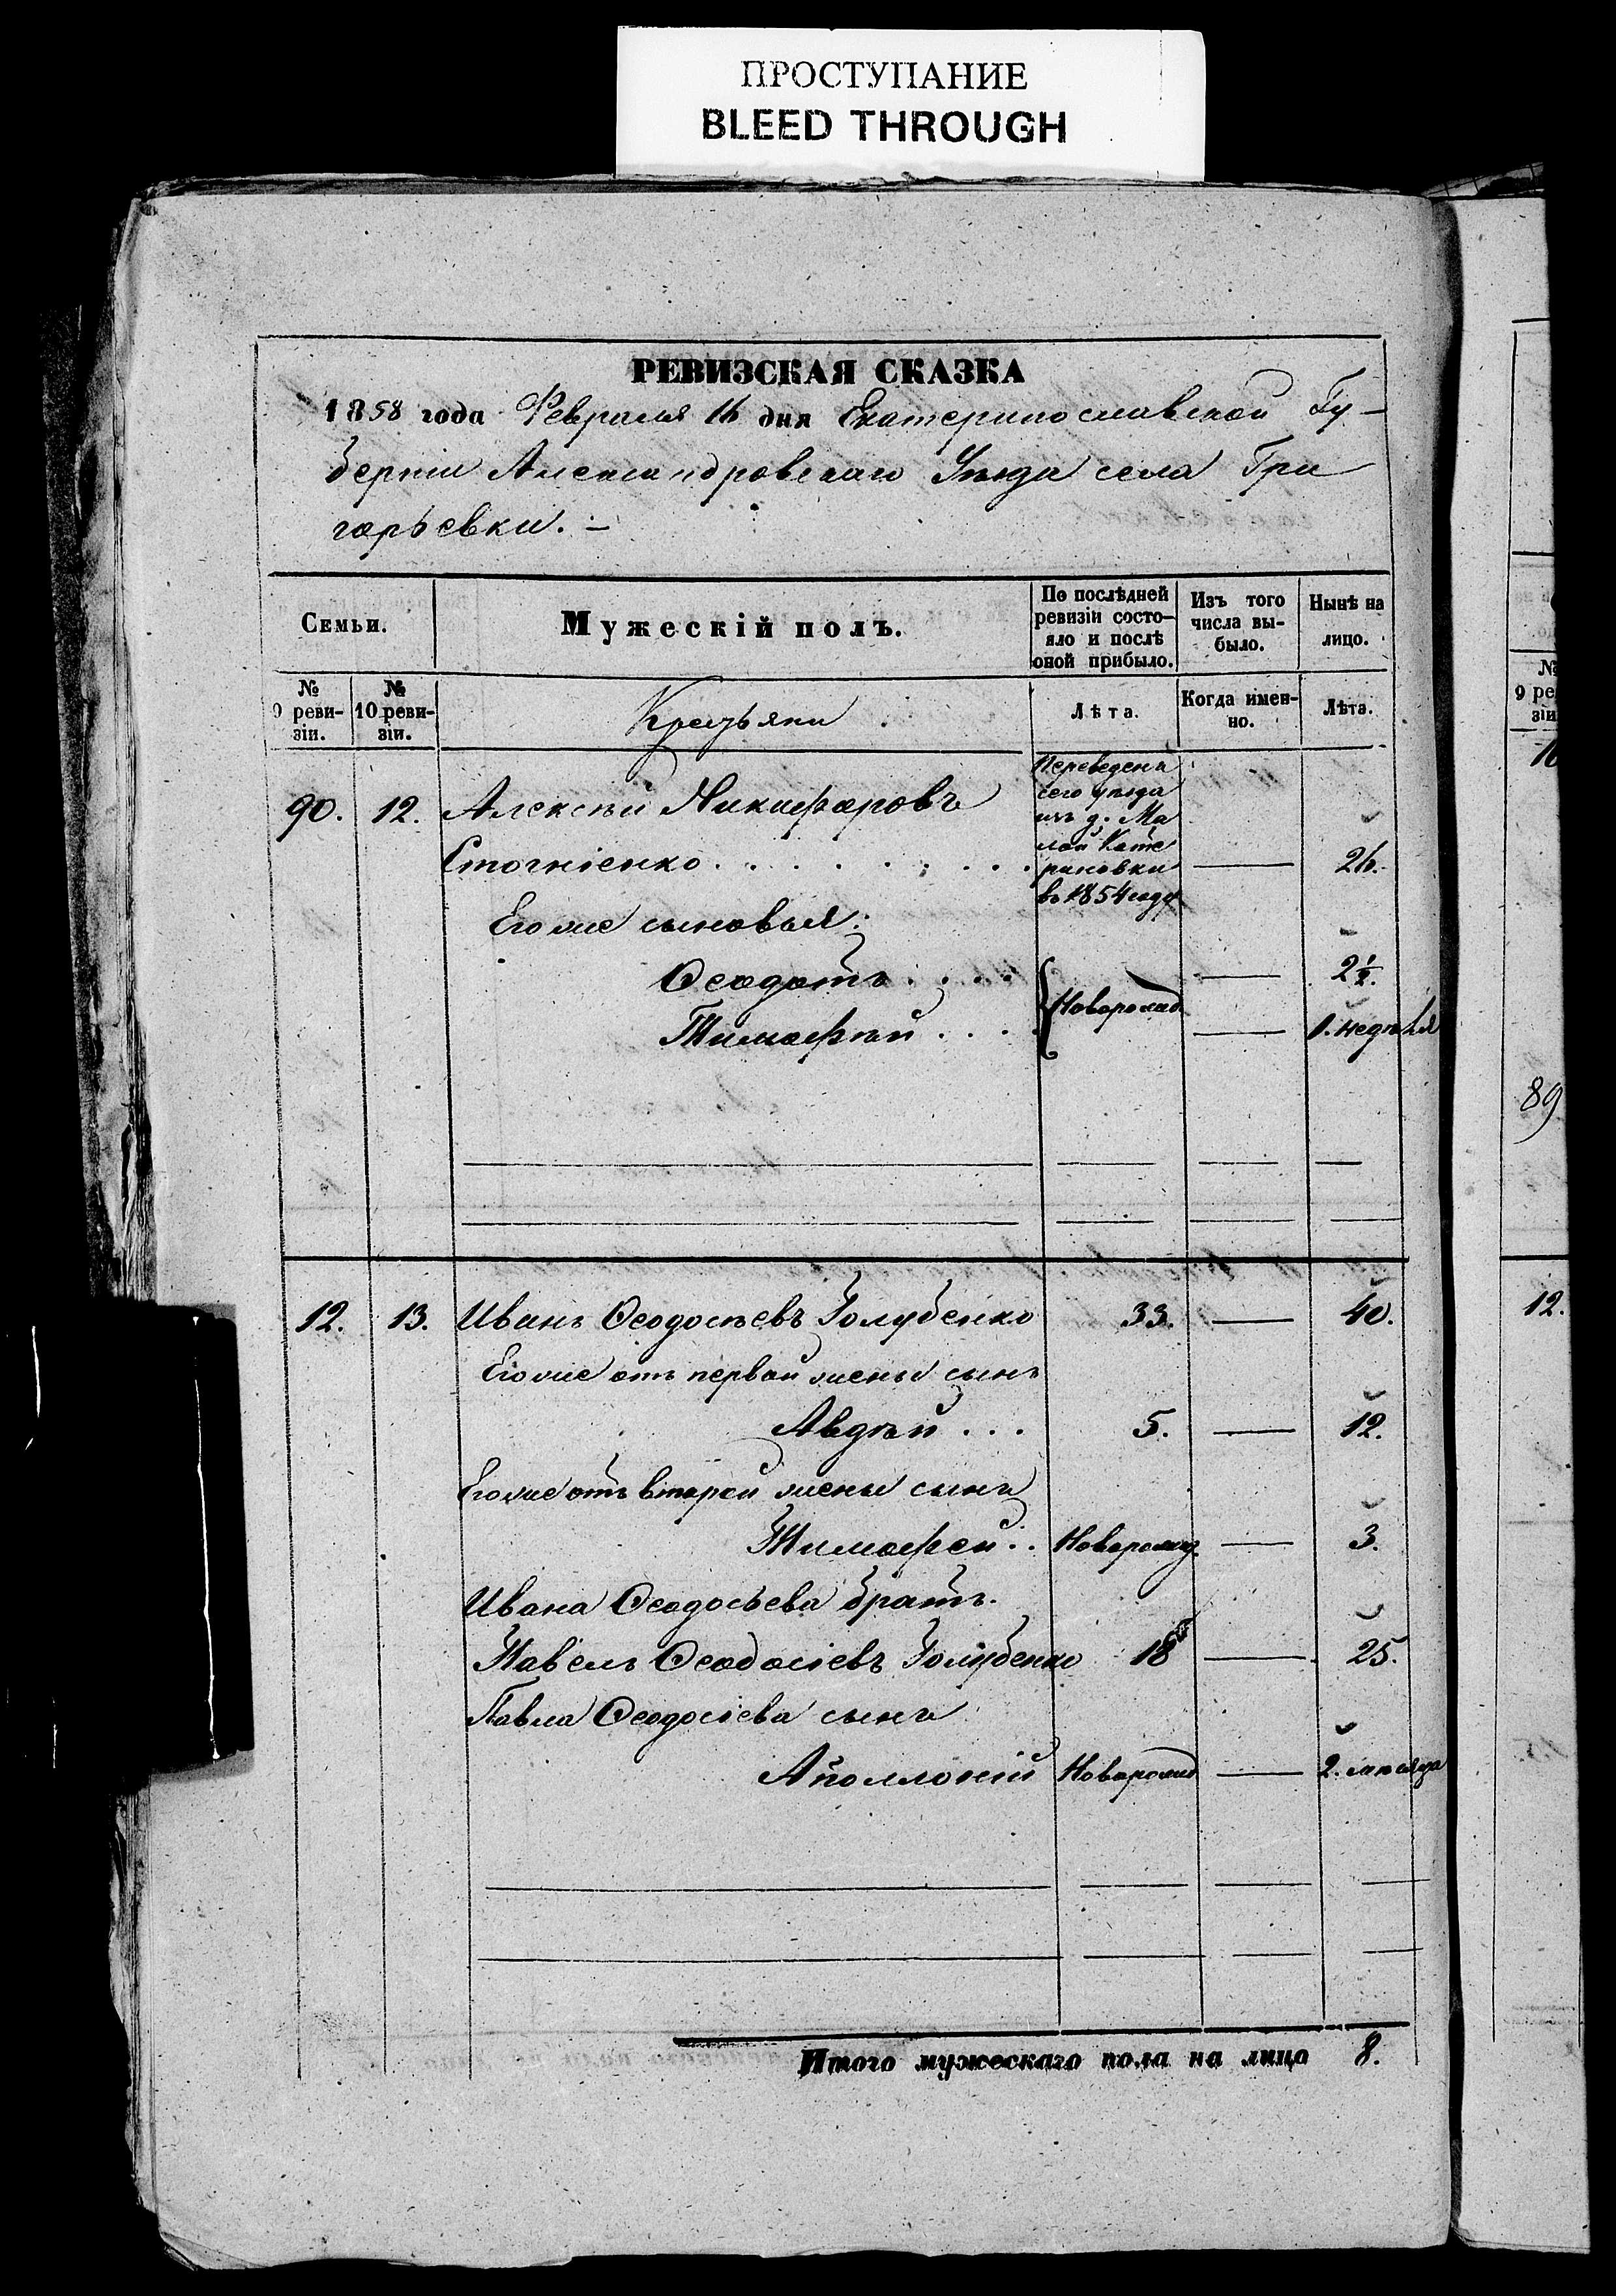 ПРОСТУПАНИЕ
BLEED THROUGH
РЕВИЗСКАЯ СКАЗКА
1858 года Февраля 16 дня Екатеринославской Гу-
берніи Александровскаго Уѣзда села Гри
горьевки. –
Семьи.
Мужескій полъ.
По послѣдней ревизіи состо-
яло и послѣ оной прибыло.
Изъ того числа вы-
было.
Нынѣ на лицо.
№ 9 реви-
зіи.
№ 10 реви-
зіи.
Крестьяни
Лѣта.
Когда имен-
но.
Лѣта.
90. 12. Алексѣй Никифоровъ
Стогніенко . . . . . . . — 26.
Переведенъ
сего уѣзда
изъ д. Ма
лой Кате
риновки
въ 1854 году
Его же сыновья:
Ѳеодотъ . . . . — 2½.
Новорожд
Тимофѣй . . . . — 1. недѣля
12. 13. Иванъ Ѳеодосіевъ Голубенко 33. — 40.
Его же отъ первой жены сынъ
Авдѣй . . . 5. — 12.
Его же отъ второй жены сынъ
Тимофей . . Новорожд. — 3.
Ивана Ѳеодосьева братъ.
Павелъ Ѳеодосіевъ Голубенко 18 — 25.
Павла Ѳеодосіева сынъ
Аполлоній Новорожд — 2. мѣсяца
Итого мужескаго пола на лицо 8.
№
9 ре
зіи
89
12.